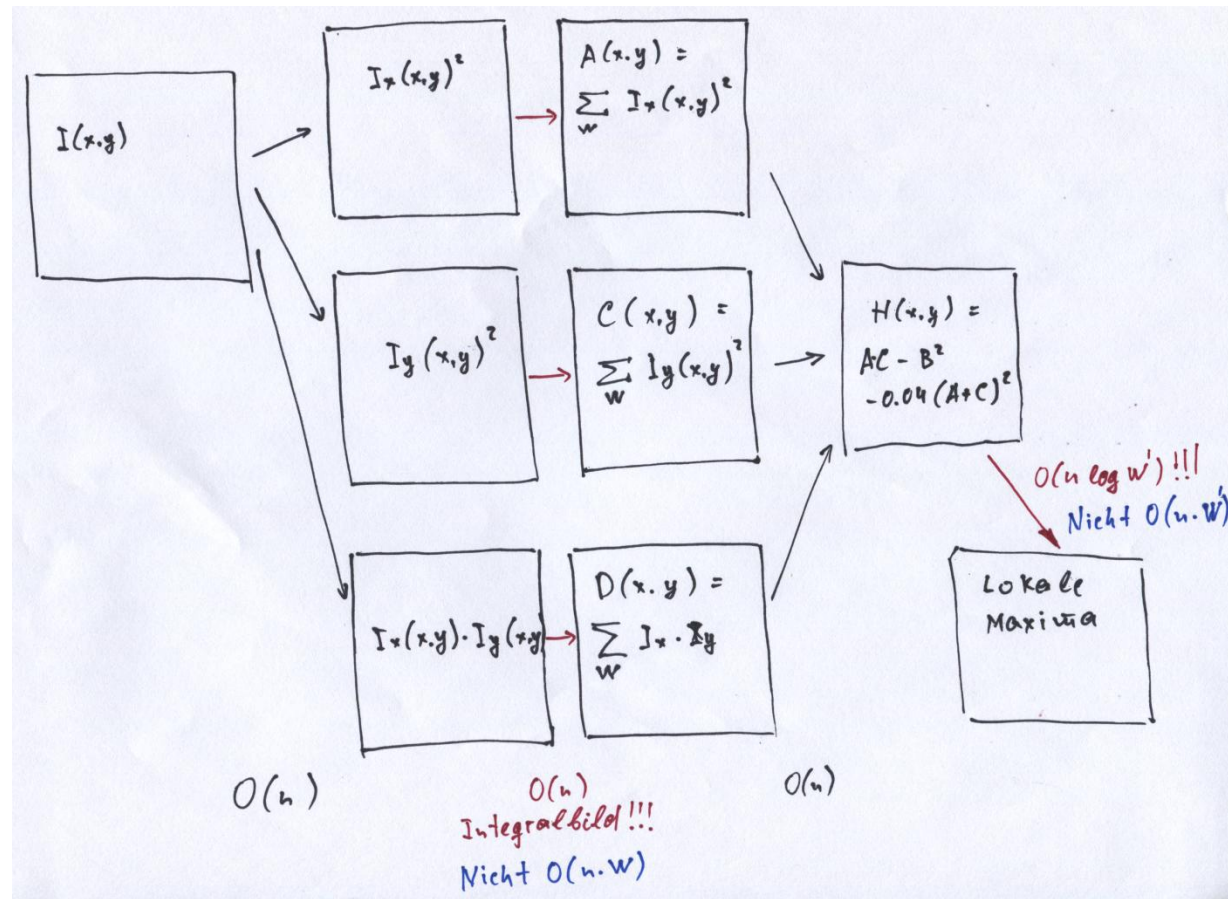 I(x,y)
Ix(x,y)²
A(x,y) =
∑ Ix(x,y)²
W
Iy(x,y)²
C(x,y) =
∑ Iy(x,y)²
W
Ix(x,y)·Iy(x,y)
D(x,y) =
∑ Ix·Iy
W
H(x,y) =
AC - B²
-0.04(A+C)²
O(n log W')!!!
Nicht O(n.W')
Lokale
Maxima
O(n)
O(n)
Integralbild!!!
Nicht O(n.W)
O(n)